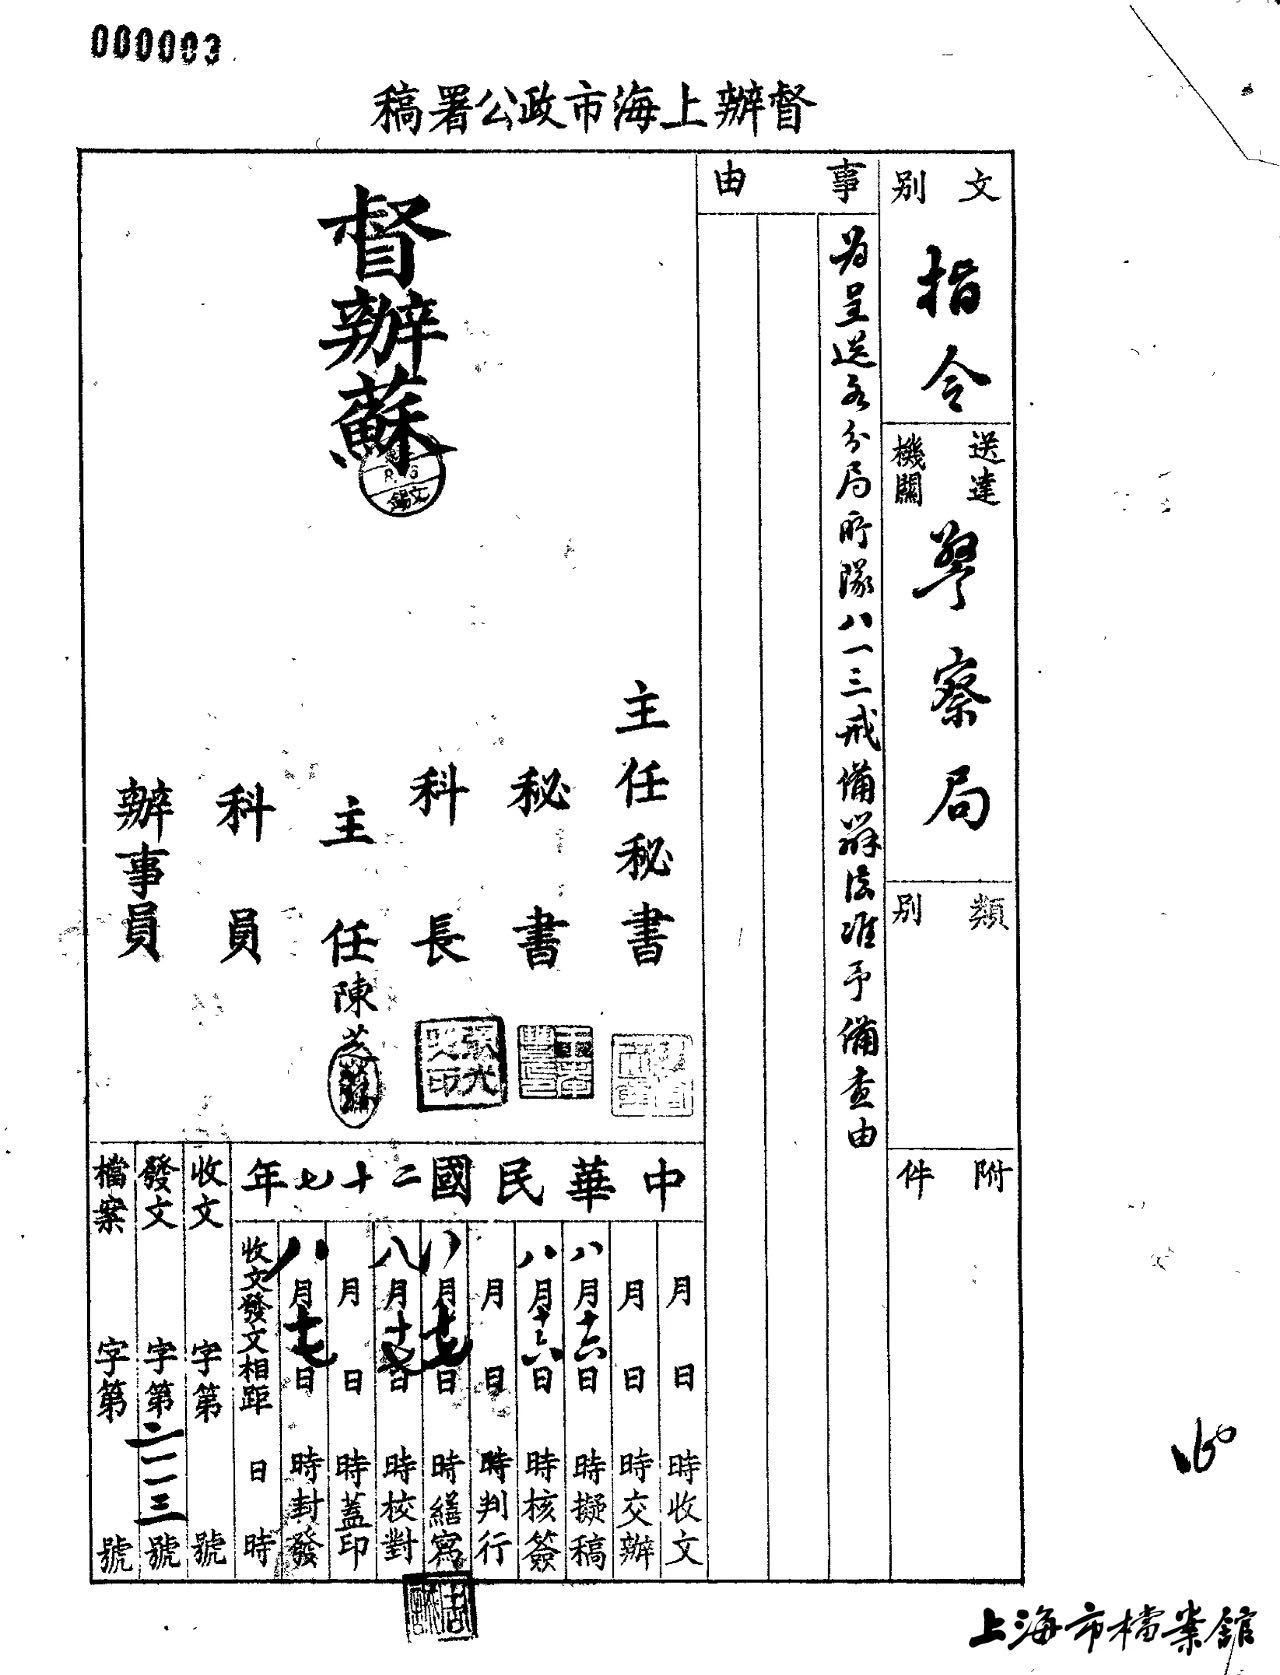 000003
督辦上海市政公署稿
文別
指令
送達機關
警察局
類別
附件
事由
為呈送各分局所隊八一三戒備辦法准予備查由
督辦蘇
文錫
主任秘書
秘書
科長
主任陳芝
科員
辦事員
中華民國二十七年
月 日 時收文
月 日 時交辦
八月十六日 時擬稿
八月十六日 時核簽
月 日 時判行
八月十七日 時繕寫
八月十七日 時校對
月 日 時蓋印
八月十七日 時封發
收文發文相距 日 時
收文 字第 號
發文 字第二一一三號
檔案 字第 號
上海市檔案館